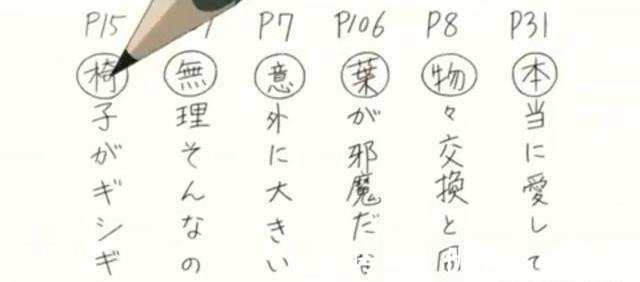 P31 本当に愛して
P8 物々交換と
P106 葉が邪魔だ
P7 意外に大きい
無理そんなの
P15 椅子がギシギ